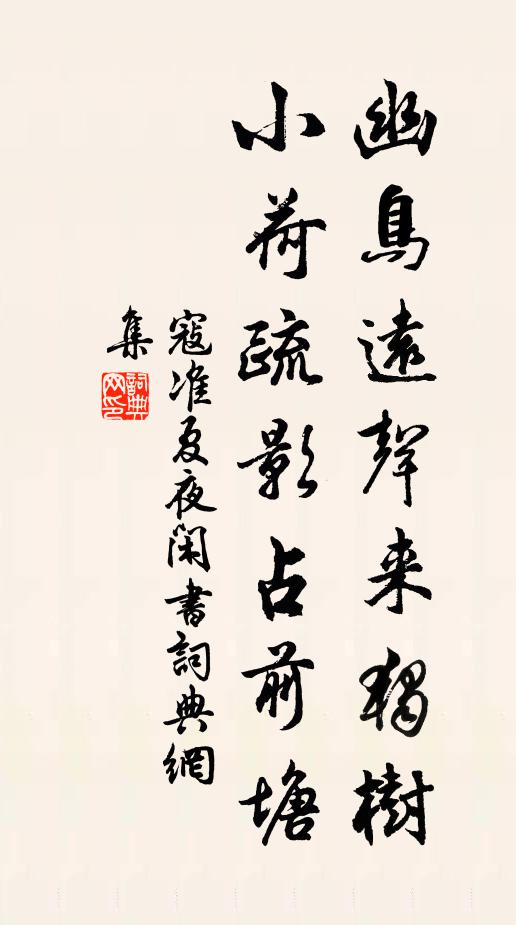 幽鳥遠聲来獨樹
小荷疏影占前塘
寇准夏夜閑書詞典網
集
詞典网印